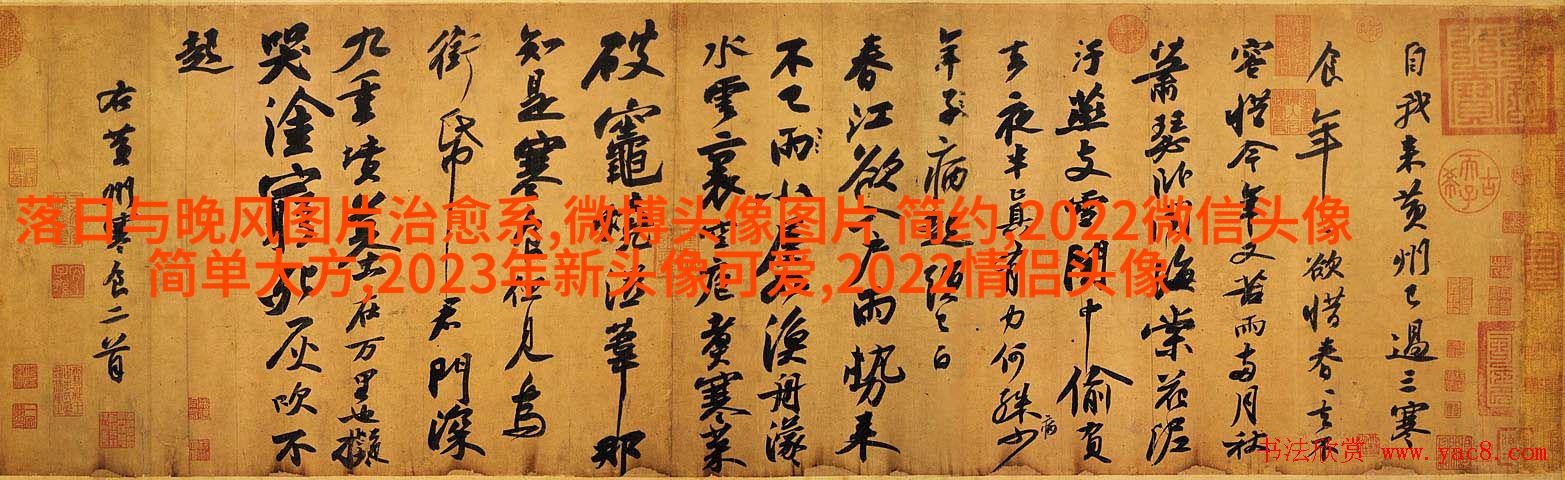 自我来黄州已過三寒
食年年欲惜春春去不
容惜今年又苦雨兩月秋
蕭瑟卧聞海棠花泥
汙燕支雪闇中偷負
去夜半真有力何殊少
病
年子病起頭已白
春江欲入户雨勢来
不已雨小屋如漁舟濛
水雲裏空庖煮寒菜
破竈燒溼葦那
知是寒食但見烏
銜帋君門深
九重墳墓在万里也擬
哭塗窮死灰吹不
起
右黄州寒食二首
落日与晚风图片治愈系,微博头像图片 简约,2022微信头像
简单大方,2023年新头像可爱,2022情侣头像
书法欣赏 www.yac8.com